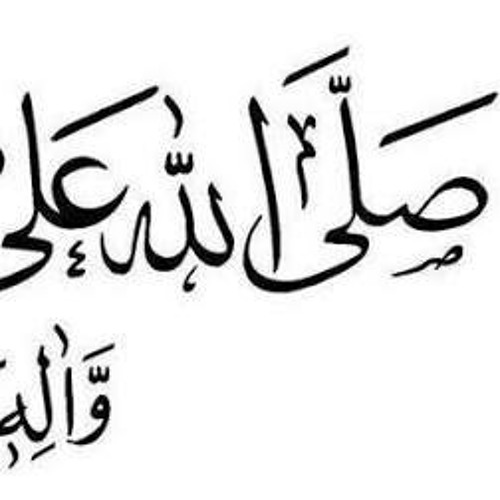 صَلَّى اللهُ عَلى
وَّاٰلِهٖ